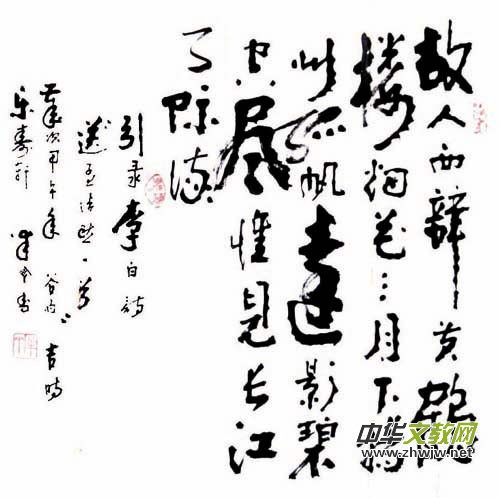 故人西辭黄鶴
楼烟花三月下揚
州孤帆遠影碧
空尽惟見长江
天际流
引录李白詩
送孟浩然一首
歲次甲午年谷雨吉時
乐寿轩
中华文教网
www.zhwjw.net